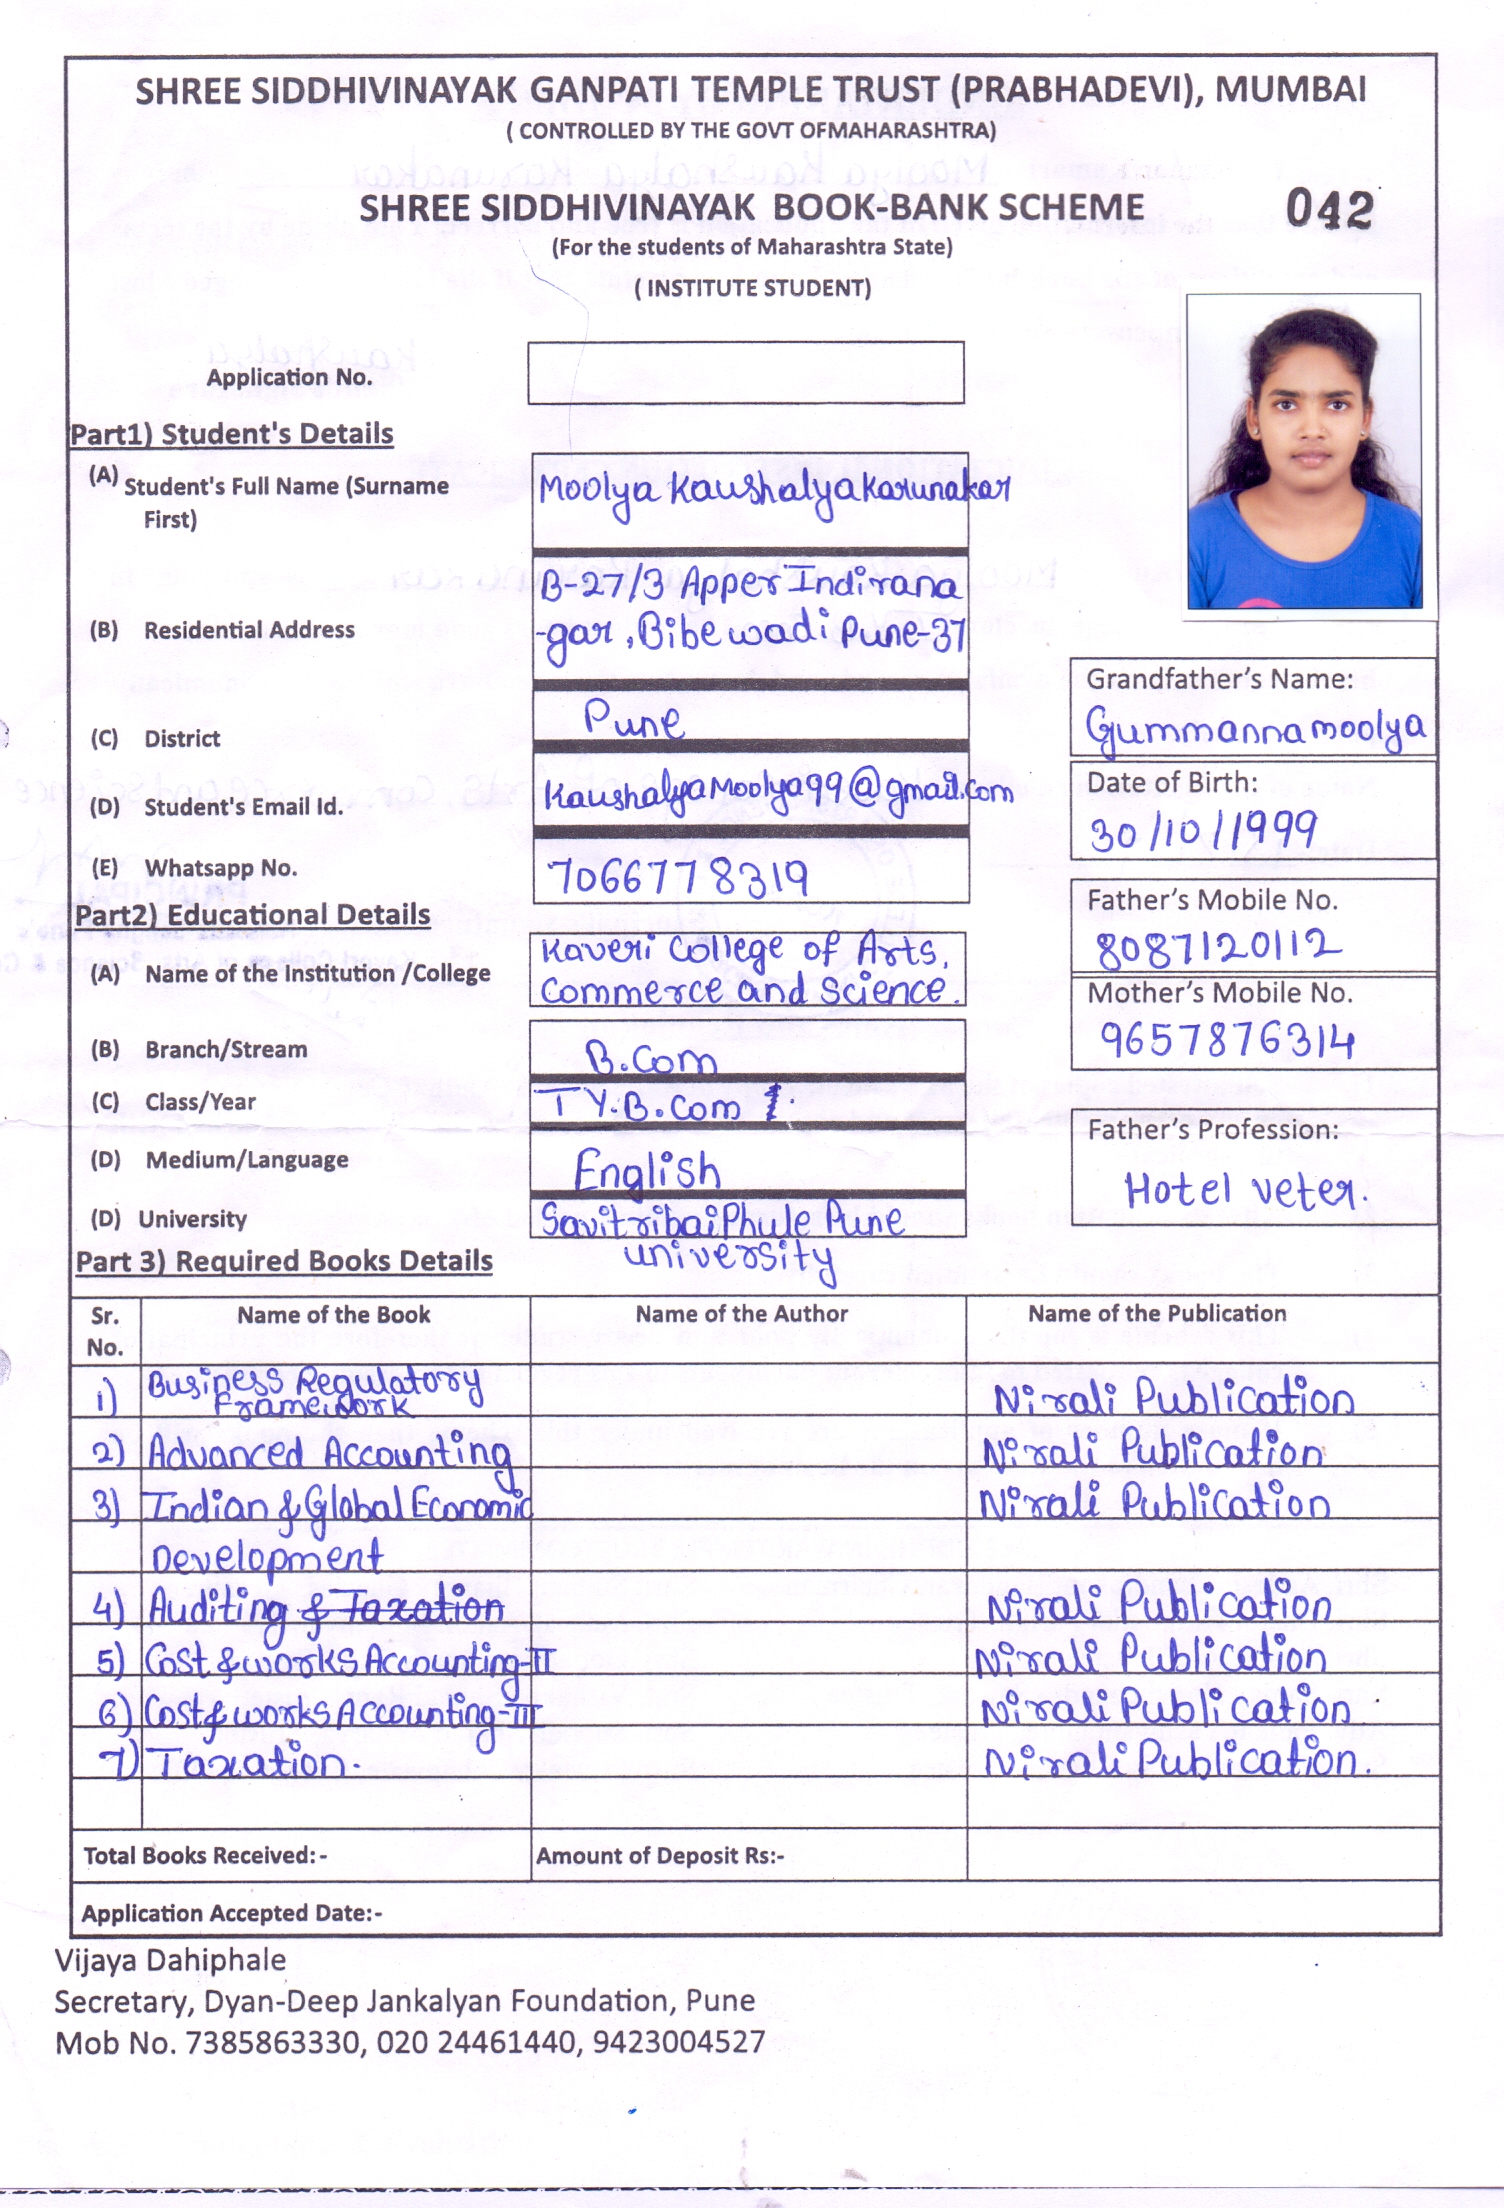 SHREE SIDDHIVINAYAK GANPATI TEMPLE TRUST (PRABHADEVI), MUMBAI
( CONTROLLED BY THE GOVT OFMAHARASHTRA)
SHREE SIDDHIVINAYAK BOOK-BANK SCHEME 042
(For the students of Maharashtra State)
( INSTITUTE STUDENT)
Application No.
Part1) Student's Details
(A) Student's Full Name (Surname First)
Moolya Kaushalya Karunakar
(B) Residential Address
B-27/3 Apper Indirana
-gar, Bibewadi Pune-37
(C) District Pune
(D) Student's Email Id. KaushalyaMoolya99@gmail.com
(E) Whatsapp No. 7066778319
Grandfather's Name:
Gummanna moolya
Date of Birth:
30/10/1999
Father's Mobile No.
8087120112
Mother's Mobile No.
9657876314
Father's Profession:
Hotel veter.
Part2) Educational Details
(A) Name of the Institution /College
Kaveri College of Arts,
Commerce and Science.
(B) Branch/Stream B.Com
(C) Class/Year TY.B.Com
(D) Medium/Language English
(D) University Savitribai Phule Pune
university
Part 3) Required Books Details
Sr. No. Name of the Book Name of the Author Name of the Publication
1) Business Regulatory Framework Nirali Publication
2) Advanced Accounting Nirali Publication
3) Indian & Global Economic Nirali Publication
Development
4) Auditing & Taxation Nirali Publication
5) Cost & works Accounting-II Nirali Publication
6) Cost & works Accounting-III Nirali Publication
7) Taxation. Nirali Publication.
Total Books Received:- Amount of Deposit Rs:-
Application Accepted Date:-
Vijaya Dahiphale
Secretary, Dyan-Deep Jankalyan Foundation, Pune
Mob No. 7385863330, 020 24461440, 9423004527